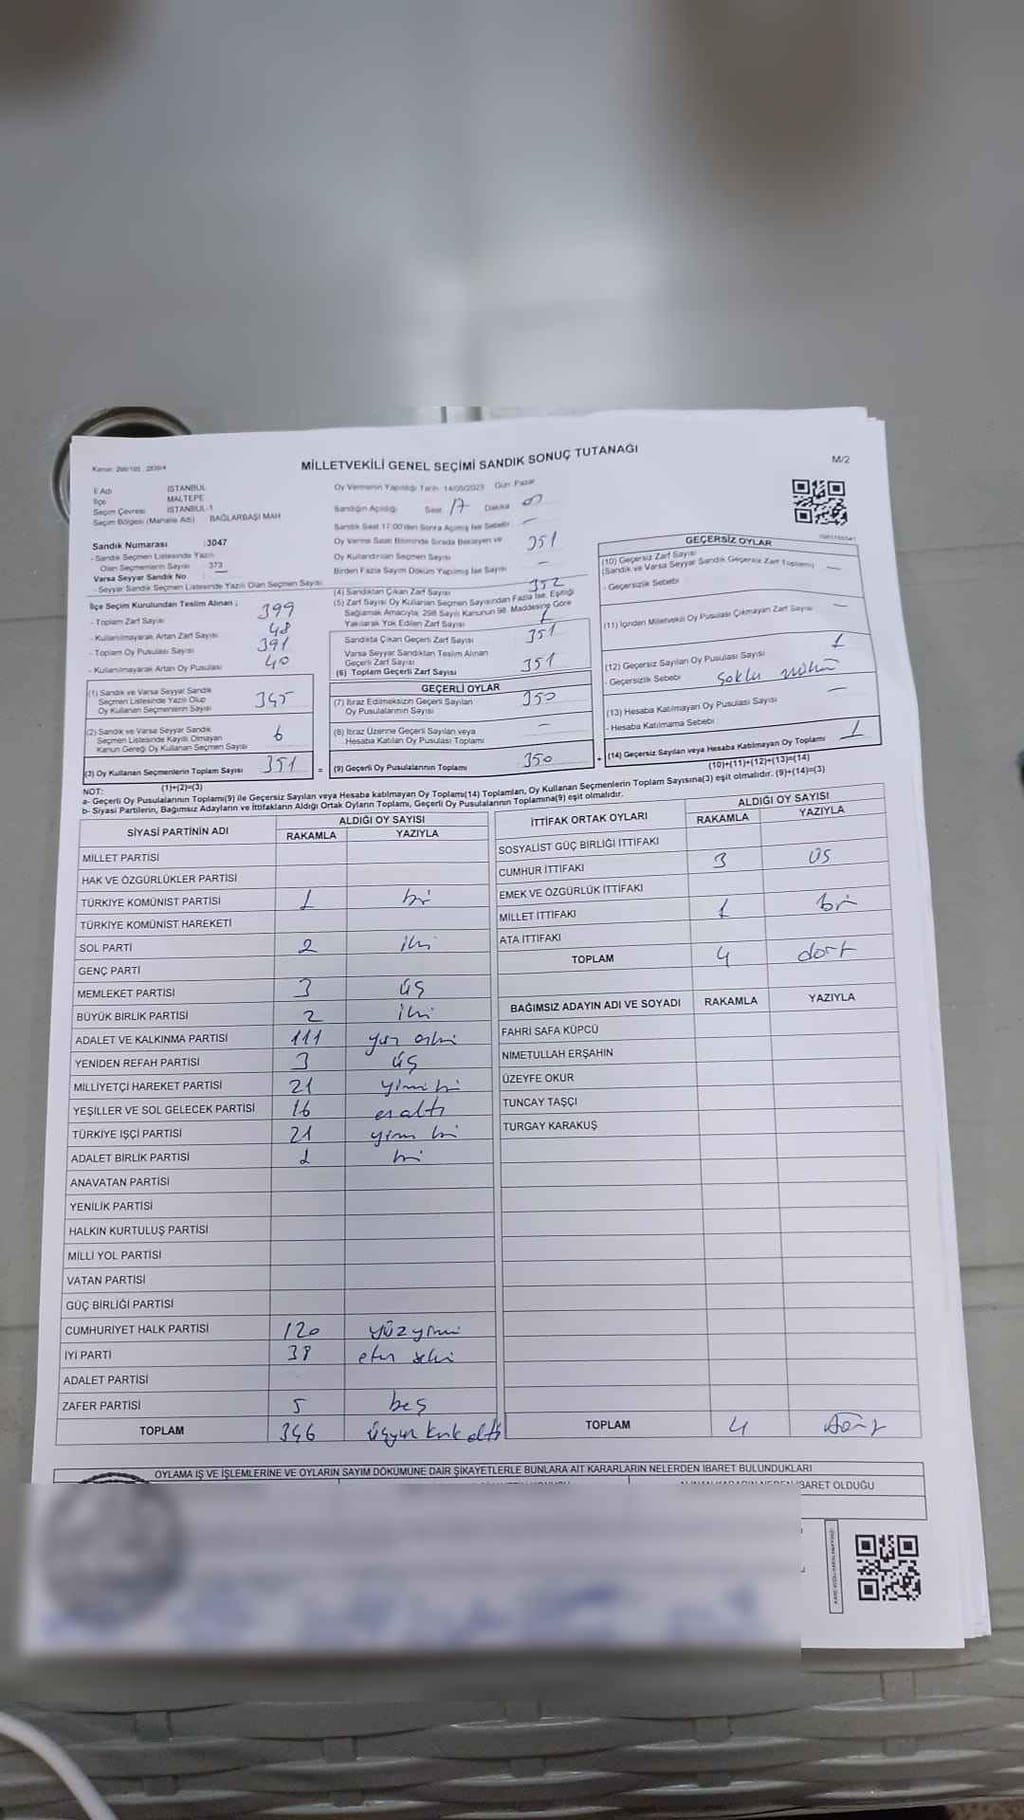 MİLLETVEKİLİ GENEL SEÇİMİ SANDIK SONUÇ TUTANAĞI
M/2
İl Adı İSTANBUL
İlçe MALTEPE
Seçim Çevresi İSTANBUL-1
Seçim Bölgesi (Mahalle Adı) BAĞLARBAŞI MAH
Sandık Numarası :3047
- Sandık Seçmen Listesinde Yazılı
Olan Seçmenlerin Sayısı 373
Varsa Seyyar Sandık No
- Seyyar Sandık Seçmen Listesinde Yazılı Olan Seçmen Sayısı
İlçe Seçim Kurulundan Teslim Alınan ;
- Toplam Zarf Sayısı 399
- Kullanılmayarak Artan Zarf Sayısı 48
- Toplam Oy Pusulası Sayısı 391
- Kullanılmayarak Artan Oy Pusulası 40
(1) Sandık ve Varsa Seyyar Sandık
Seçmen Listesinde Yazılı Olup
Oy Kullanan Seçmenlerin Sayısı 345
(2) Sandık ve Varsa Seyyar Sandık
Seçmen Listesinde Kayıtlı Olmayan
Kanun Gereği Oy Kullanan Seçmen Sayısı 6
(3) Oy Kullanan Seçmenlerin Toplam Sayısı 351
Oy Vermenin Yapıldığı Tarih 14/05/2023 Gün Pazar
Sandığın Açıldığı Saat 17 Dakika
Sandık Saat 17:00'den Sonra Açılmış İse Sebebi —
Oy Verme Saati Bitiminde Sırada Bekleyen ve
Oy Kullandırılan Seçmen Sayısı 351
Birden Fazla Sayım Döküm Yapılmış İse Sayısı —
(4) Sandıktan Çıkan Zarf Sayısı 352
(5) Zarf Sayısı Oy Kullanan Seçmen Sayısından Fazla İse, Eşitliği
Sağlamak Amacıyla, 298 Sayılı Kanunun 98. Maddesine Göre
Yakılarak Yok Edilen Zarf Sayısı 1
Sandıkta Çıkan Geçerli Zarf Sayısı 351
Varsa Seyyar Sandıktan Teslim Alınan
Geçerli Zarf Sayısı
(6) Toplam Geçerli Zarf Sayısı 351
GEÇERLİ OYLAR
(7) İtiraz Edilmeksizin Geçerli Sayılan
Oy Pusulalarının Sayısı 350
(8) İtiraz Üzerine Geçerli Sayılan veya
Hesaba Katılan Oy Pusulası Toplamı —
(9) Geçerli Oy Pusulalarının Toplamı 350
GEÇERSİZ OYLAR
(10) Geçersiz Zarf Sayısı
(Sandık ve Varsa Seyyar Sandık Geçersiz Zarf Toplamı) —
- Geçersizlik Sebebi
(11) İçinden Milletvekili Oy Pusulası Çıkmayan Zarf Sayısı —
(12) Geçersiz Sayılan Oy Pusulası Sayısı 1
- Geçersizlik Sebebi
(13) Hesaba Katılmayan Oy Pusulası Sayısı —
- Hesaba Katılmama Sebebi
(14) Geçersiz Sayılan veya Hesaba Katılmayan Oy Toplamı 1
(10)+(11)+(12)+(13)=(14)
NOT: (1)+(2)=(3)
a- Geçerli Oy Pusulalarının Toplamı(9) ile Geçersiz Sayılan veya Hesaba katılmayan Oy Toplamı(14) Toplamları, Oy Kullanan Seçmenlerin Toplam Sayısına(3) eşit olmalıdır. (9)+(14)=(3)
b- Siyasi Partilerin, Bağımsız Adayların ve İttifakların Aldığı Ortak Oyların Toplamı, Geçerli Oy Pusulalarının Toplamına(9) eşit olmalıdır.
SİYASİ PARTİNİN ADI ALDIĞI OY SAYISI
RAKAMLA YAZIYLA
MİLLET PARTİSİ
HAK VE ÖZGÜRLÜKLER PARTİSİ
TÜRKİYE KOMÜNİST PARTİSİ 1 bir
TÜRKİYE KOMÜNİST HAREKETİ
SOL PARTİ 2 iki
GENÇ PARTİ
MEMLEKET PARTİSİ 3 üç
BÜYÜK BİRLİK PARTİSİ 2 iki
ADALET VE KALKINMA PARTİSİ 111
YENİDEN REFAH PARTİSİ 3 üç
MİLLİYETÇİ HAREKET PARTİSİ 21
YEŞİLLER VE SOL GELECEK PARTİSİ 16 onaltı
TÜRKİYE İŞÇİ PARTİSİ 21
ADALET BİRLİK PARTİSİ 1 bir
ANAVATAN PARTİSİ
YENİLİK PARTİSİ
HALKIN KURTULUŞ PARTİSİ
MİLLİ YOL PARTİSİ
VATAN PARTİSİ
GÜÇ BİRLİĞİ PARTİSİ
CUMHURİYET HALK PARTİSİ 120 yüzyirmi
İYİ PARTİ 38
ADALET PARTİSİ
ZAFER PARTİSİ 5 beş
TOPLAM 346
İTTİFAK ORTAK OYLARI ALDIĞI OY SAYISI
RAKAMLA YAZIYLA
SOSYALİST GÜÇ BİRLİĞİ İTTİFAKI
CUMHUR İTTİFAKI 3 üs
EMEK VE ÖZGÜRLÜK İTTİFAKI
MİLLET İTTİFAKI 1 bir
ATA İTTİFAKI
TOPLAM 4 dört
BAĞIMSIZ ADAYIN ADI VE SOYADI RAKAMLA YAZIYLA
FAHRİ SAFA KÜPCÜ
NİMETULLAH ERŞAHİN
ÜZEYFE OKUR
TUNCAY TAŞÇI
TURGAY KARAKUŞ
TOPLAM 4 dört
OYLAMA İŞ VE İŞLEMLERİNE VE OYLARIN SAYIM DÖKÜMÜNE DAİR ŞİKAYETLERLE BUNLARA AİT KARARLARIN NELERDEN İBARET BULUNDUKLARI
İBARET OLDUĞU